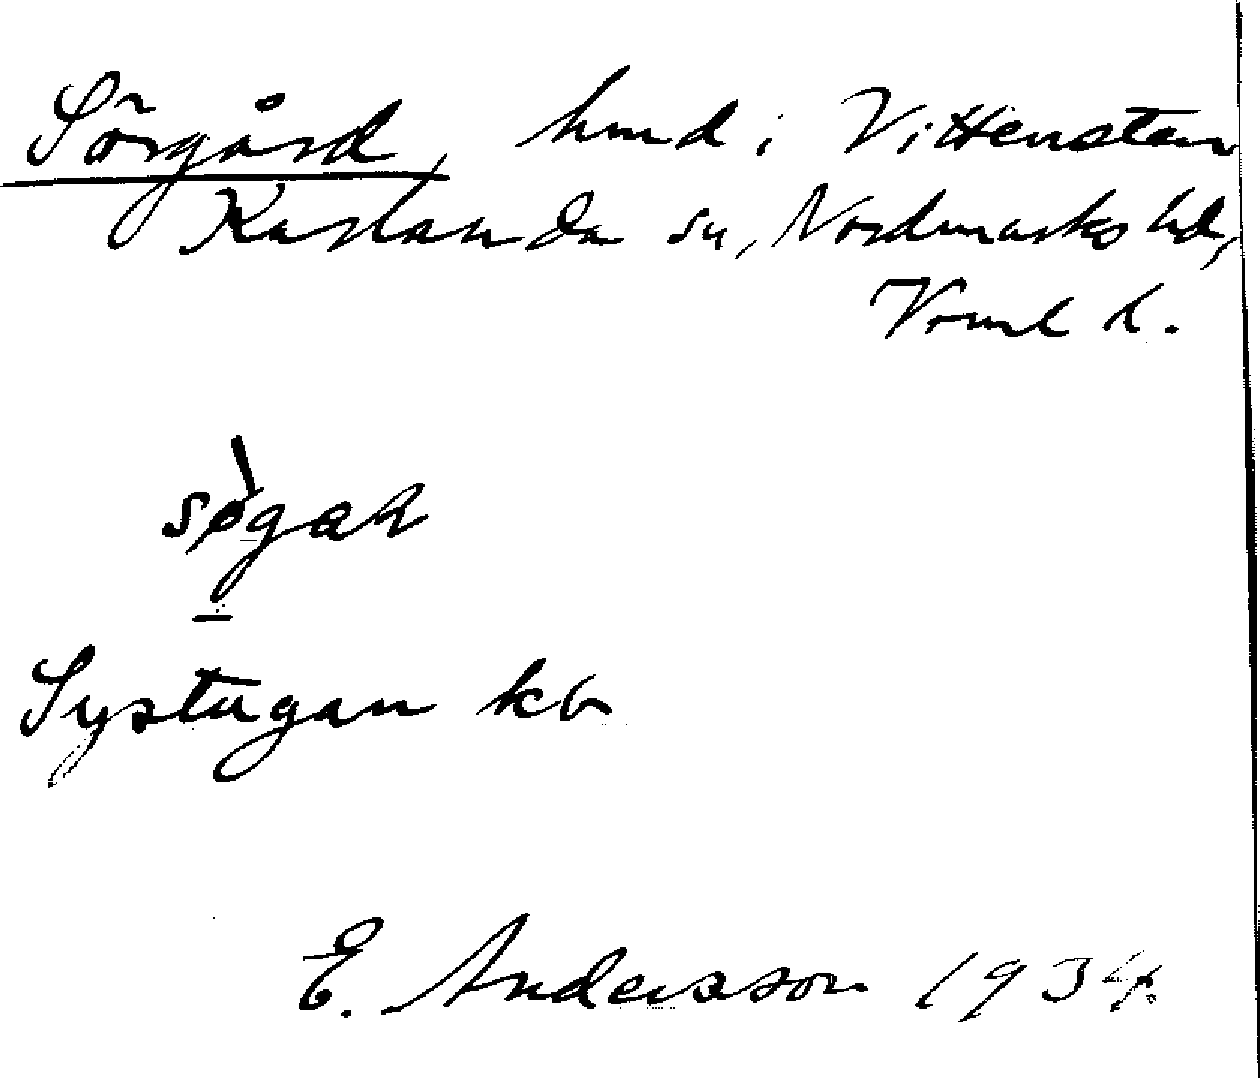 Sörgård, hmd i Vittensten
Karlanda sn, Nordmarks hd,
Vrml l.
søgaR
Systugan kb
E. Andersson 1934.